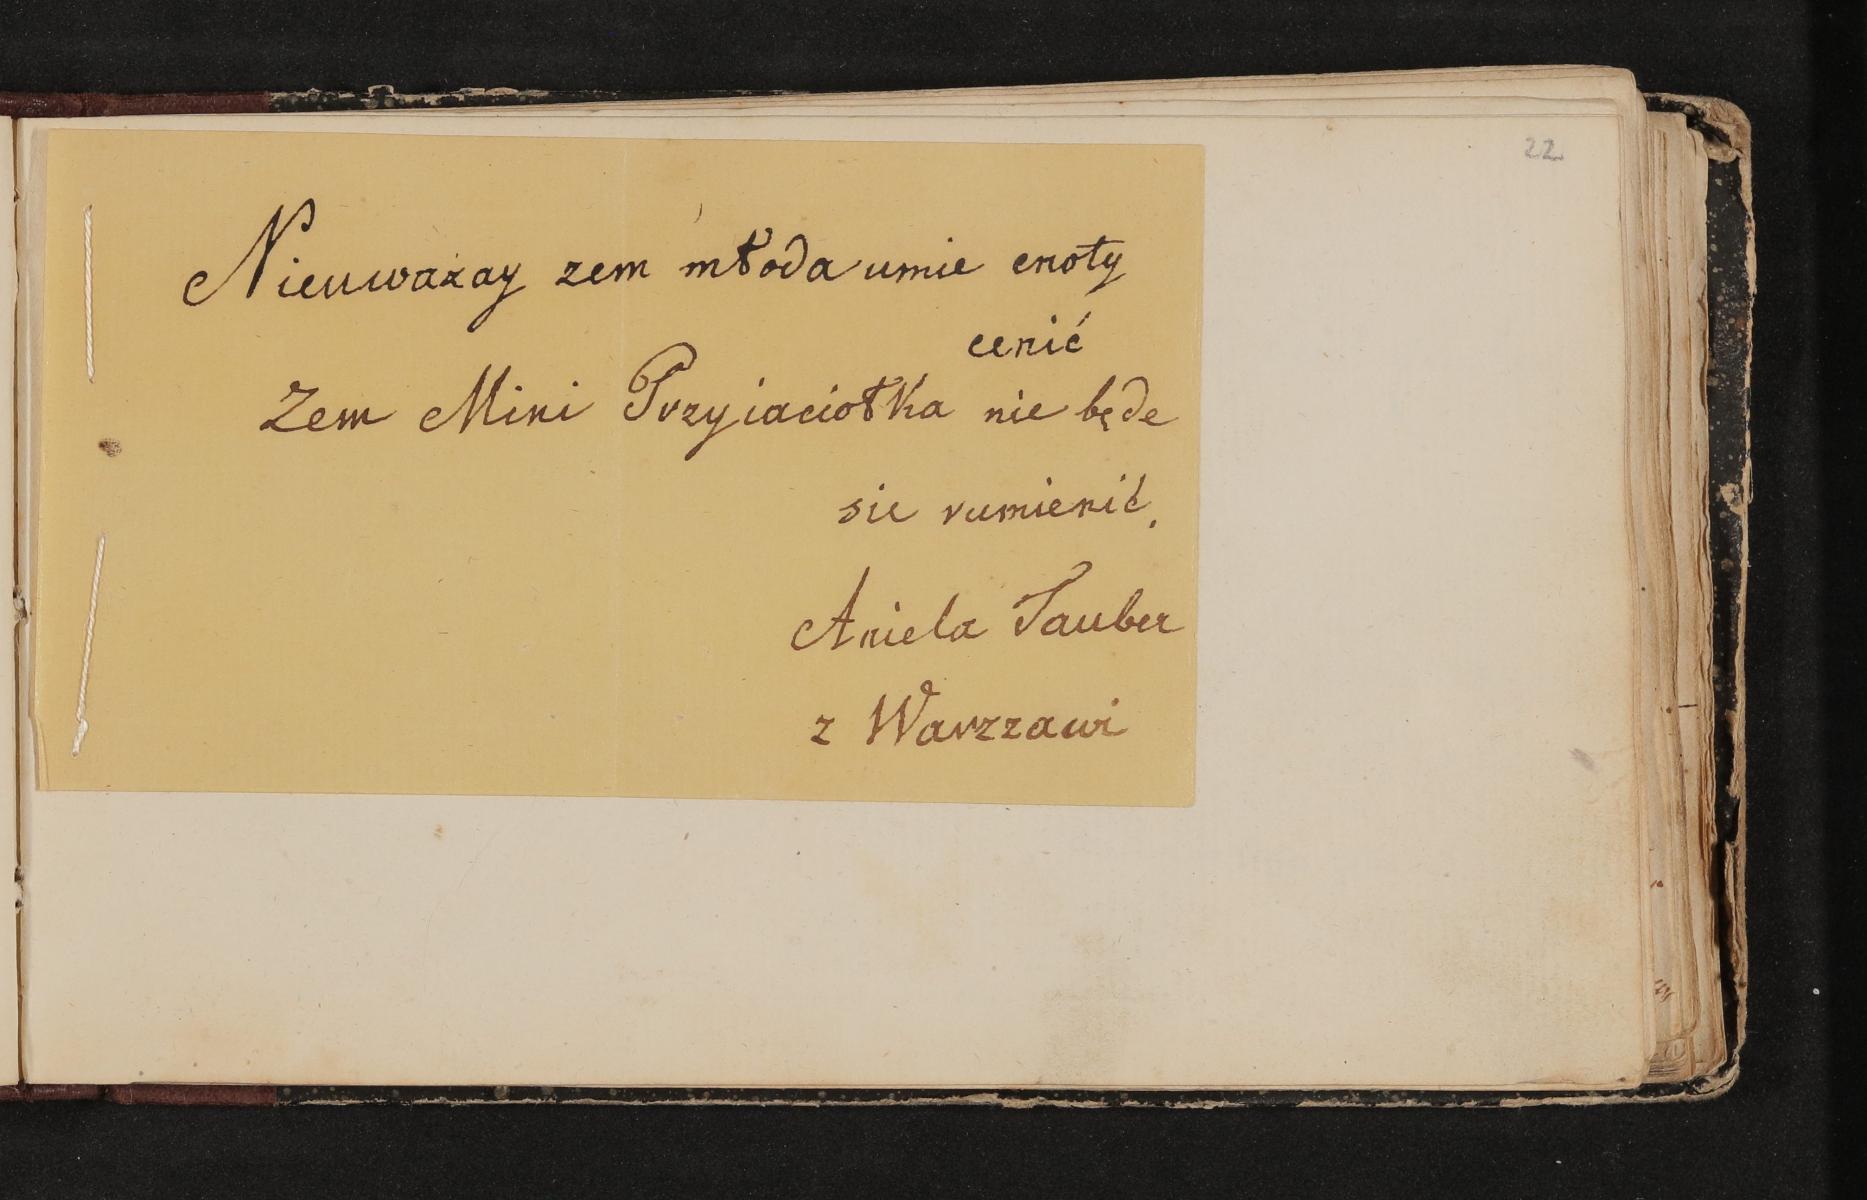 22
Nieuważay zem młoda umie cnoty
cenić
Zem Mini Przyiaciołka nie będe
sie rumienić.
Aniela Tauber
z Warzzawi